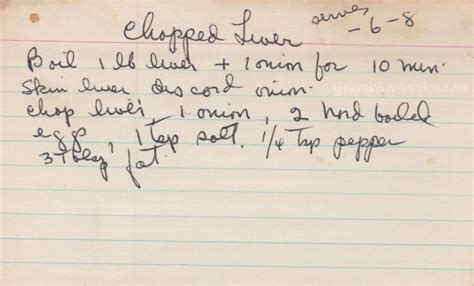 Chopped Liver serves -6-8
Boil 1 lb liver + 1 onion for 10 min.
Skin liver discord onion.
chop liver, 1 onion, 2 hard boiled
eggs, 1 tsp salt. 1/4 tsp pepper
3 tbsp fat.
GramsRecipeBox.com